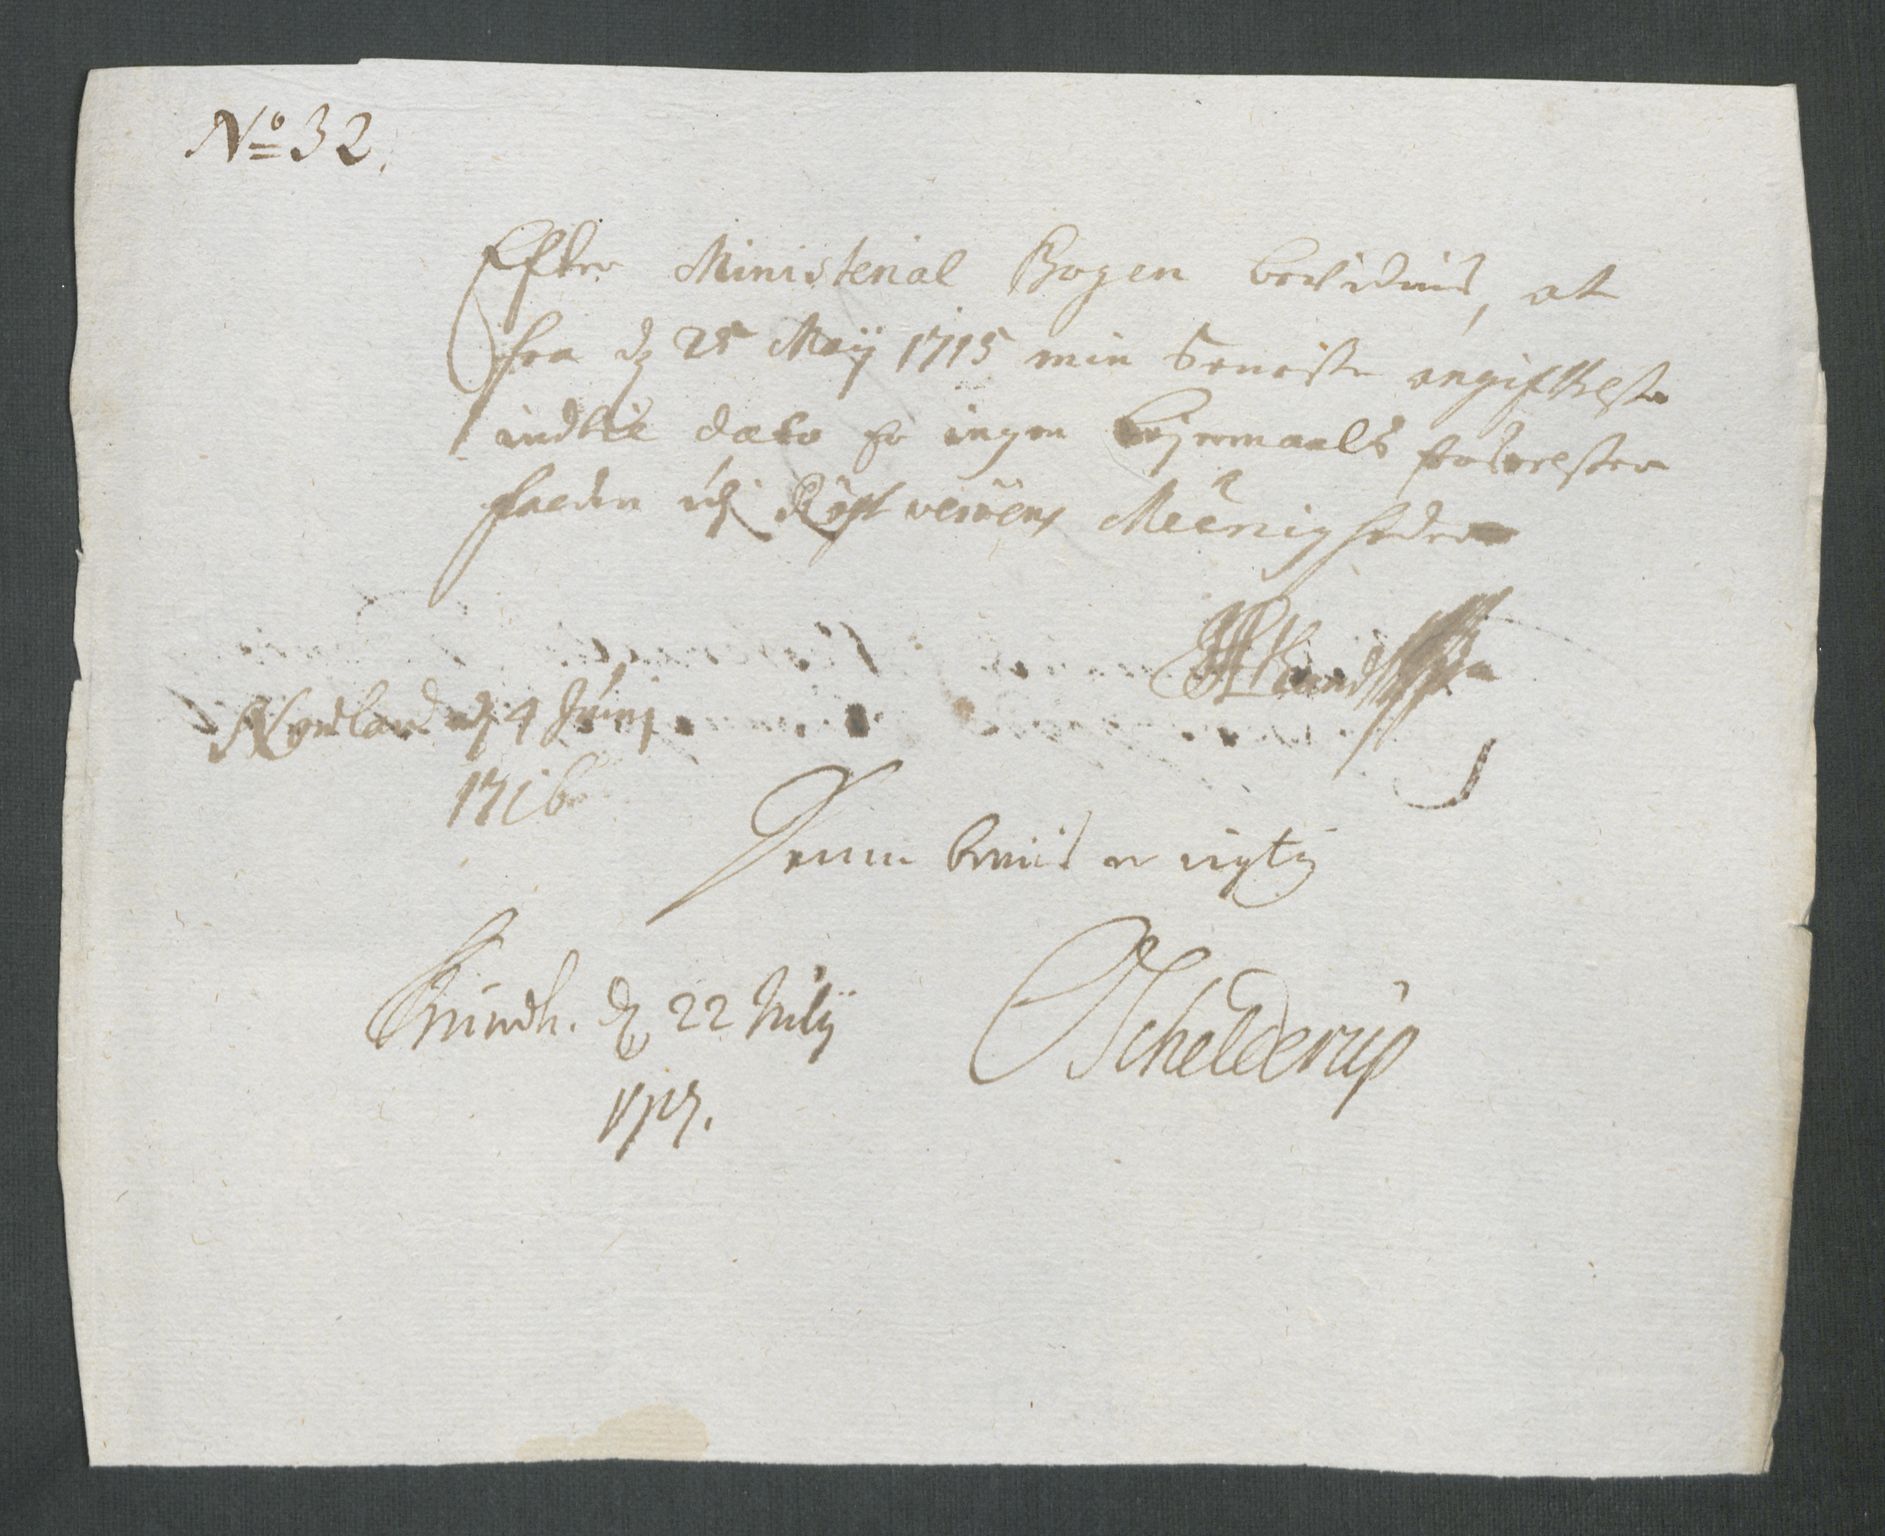 No 32.
Efter Ministerial Bogen bevidnis, at
fra d 25 Maij 1715 min Seneste angifttelse
indtil dato er ingen Lejermaals forbrydelser
falden udj Røst verøens Meenigheder
Nordland d 4 Junj
1716
Denne beviis er rigtig
Trundh. d 22 Julij
1717.
Schelderup